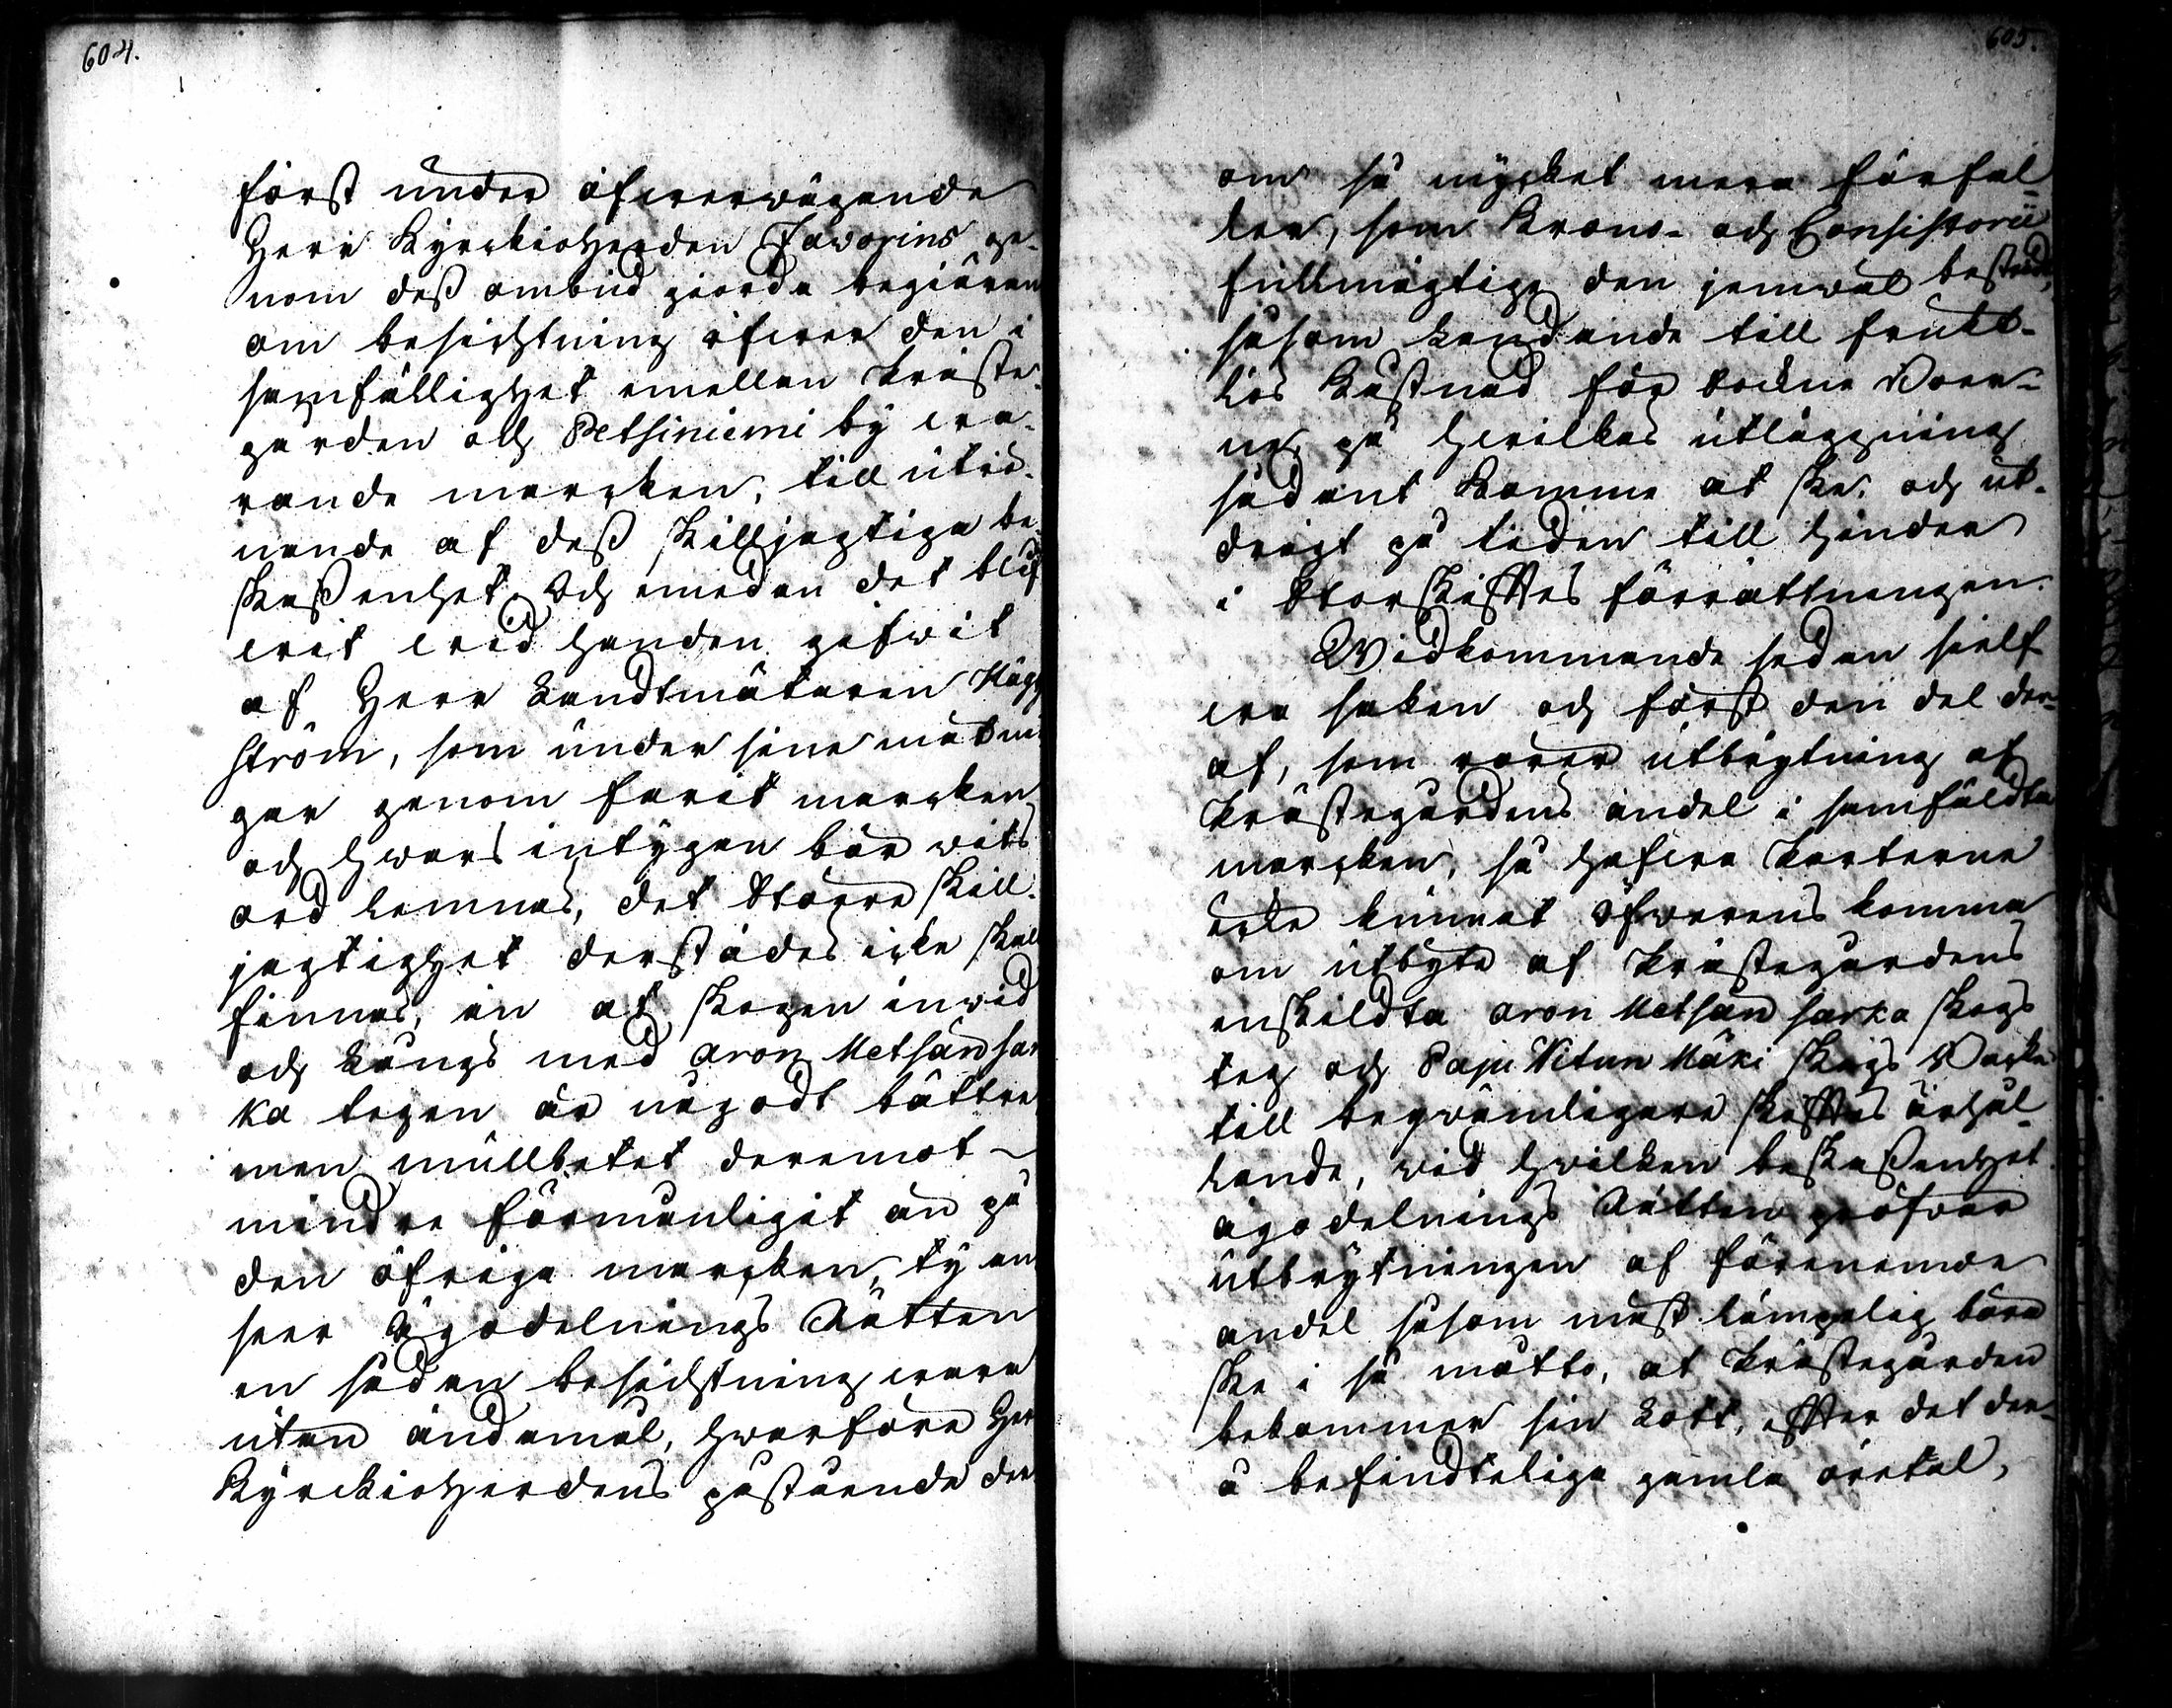 604.
först under öfwerwägande
Herr Kyrckioherden Favorins ge-
nom dess ombud giorda begiäran
om besichtning öfwer den i
samfällighet emellan Präste-
gården och Petsiniemi by wa-
rande marcken, till utrö-
nande af dess skilljagtiga be-
skaffenhet. Och emedan det blif
wit wid handen gifwit
af Herr Landtmätaren Hägg
ström, som under sine mätnin
gar genom farit marcken
och hwars intygan bör wits
ord lemnas, det större skill-
jagtighet derstädes icke skall
finnas, än at skogen inwid
och längs med Aron Metsän sar
ka tegen är någodt bättre
men mullbetet deremot
mindre förmånligit än på
den öfriga marcken, ty an
seer Ägodelnings Rätten
en sådan besichtning wara
utan ändamål, hwarföre Herr
Kyrckioherdens påstående der
605.
om så mycket mera förfal-
ler, som Krono- och Consistorii
fullmägtige den jemwäl bestridt,
såsom ländande till frukt-
lös kåstnad för Sockne Boer-
ne, på hwilkas utläggning
sådant komme at ske, och ut-
drägt på tiden till hinder
i Storskiftes förrättningen.
Widkommande sedan sielf
wa saken och först den del der-
af, som rörer utbrytning af
Prästegårdens andel i samfäldta
marcken, så hafwa Parterne
icke kunnat öfwerens komma
om utbyte af Prästegårdens
enskildta Aron Metsän sarka skogs
teg och Paju Witun Mäki skogs Backe
till beqwämligare skiftes ärhål-
lande, wid hwilken beskaffenhet
Ägodelnings Rätten pröfwar
utbrytningen af förenemde
andel såsom mäst lämpelig böra
ske i så motto, at Prästegården
bekommer sin Lott, efter det der-
å befindteliga gamla öretal,